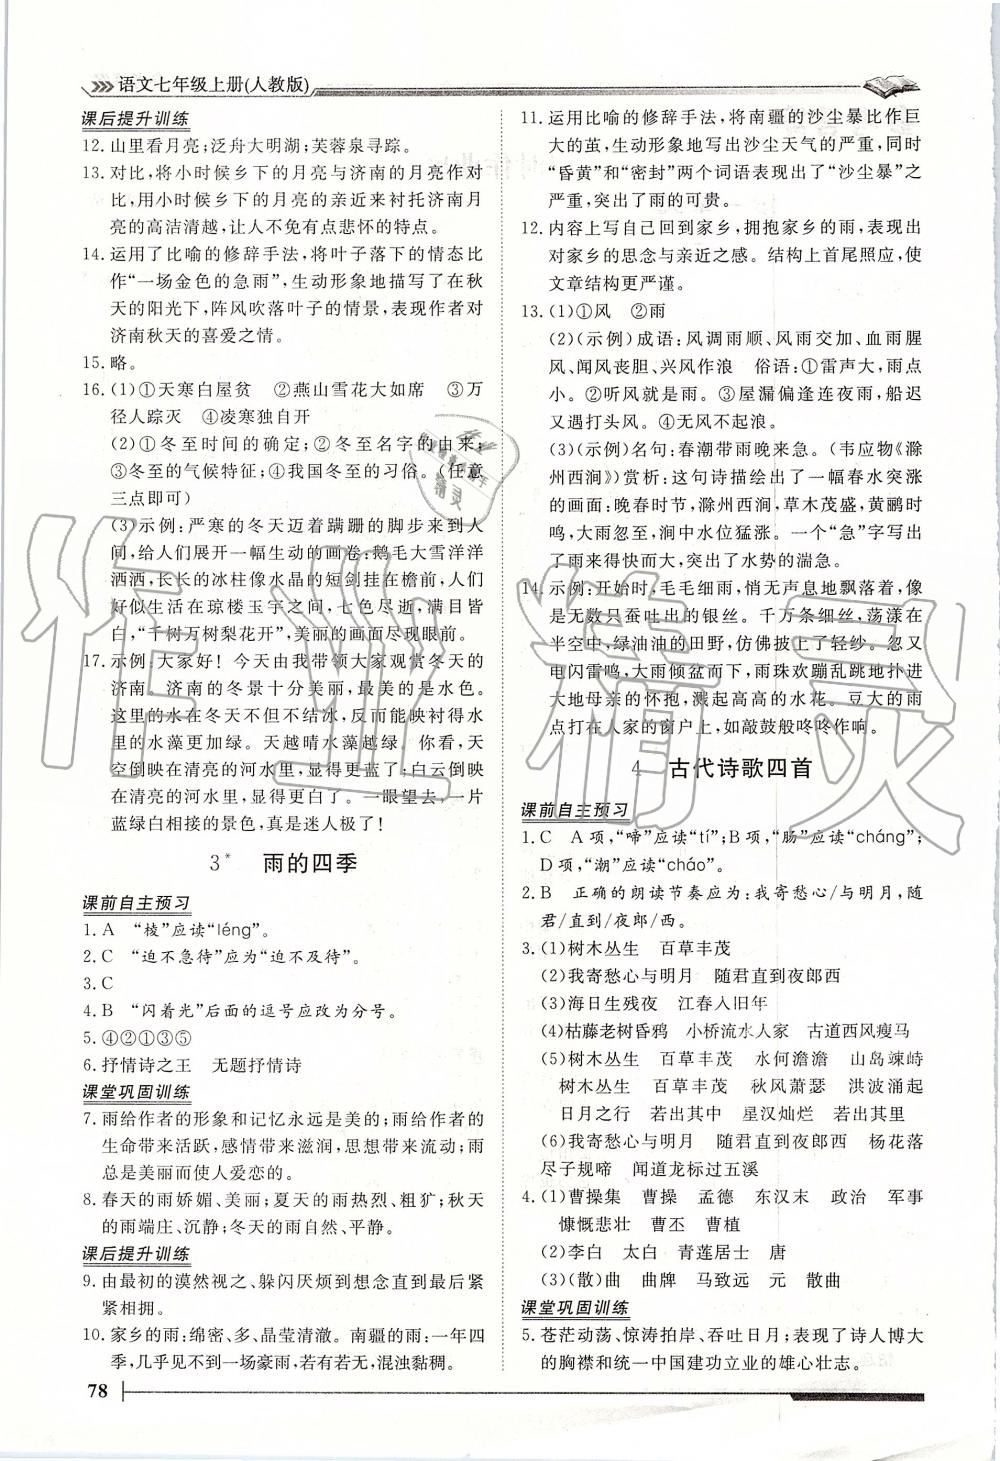 语文七年级上册(人教版)
课后提升训练
12. 山里看月亮;泛舟大明湖;芙蓉泉寻踪。
13. 对比,将小时候乡下的月亮与济南的月亮作对
比,用小时候乡下的月亮的亲近来衬托济南月
亮的高洁清越,让人不免有点悲怀的特点。
14. 运用了比喻的修辞手法,将叶子落下的情态比
作“一场金色的急雨”,生动形象地描写了在秋
天的阳光下,阵风吹落叶子的情景,表现作者对
济南秋天的喜爱之情。
15. 略。
16. (1)①天寒白屋贫 ②燕山雪花大如席 ③万
径人踪灭 ④凌寒独自开
(2)①冬至时间的确定;②冬至名字的由来;
③冬至的气候特征;④我国冬至的习俗。(任意
三点即可)
(3)示例:严寒的冬天迈着蹒跚的脚步来到人
间,给人们展开一幅生动的画卷:鹅毛大雪洋洋
洒洒,长长的冰柱像水晶的短剑挂在檐前,人们
好似生活在琼楼玉宇之间,七色尽逝,满目皆
白,“千树万树梨花开”,美丽的画面尽现眼前。
17. 示例:大家好!今天由我带领大家观赏冬天的
济南。济南的冬景十分美丽,最美的是水色。
这里的水在冬天不但不结冰,反而能映衬得水
里的水藻更加绿。天越晴水藻越绿。你看,天
空倒映在清亮的河水里,蓝蓝的;白云倒映在
清亮的河水里,白白的。一眼望去,一片
蓝绿白相接的景色,真是迷人极了!
3* 雨的四季
课前自主预习
1. A “棱”应读“léng”。
2. C “迫不急待”应为“迫不及待”。
3. C
4. B “闪着光”后面的逗号应改为分号。
5. ④②①③⑤
6. 抒情诗之王 无题抒情诗
课堂巩固训练
7. 雨给作者的形象和记忆永远是美的;雨给作者的
生命带来活跃,感情带来滋润,思想带来流动;雨
总是美丽而使人爱恋的。
8. 春天的雨娇媚、美丽;夏天的雨热烈、粗犷;秋天
的雨端庄、沉静;冬天的雨自然、平静。
课后提升训练
9. 由最初的漠然视之、躲闪厌烦到想念直到最后紧
紧相拥。
10. 家乡的雨:绵密、多、晶莹清澈。南疆的雨:一年四
季,几乎见不到一场豪雨,若有若无,混浊黏稠。
78
11. 运用比喻的修辞手法,将南疆的沙尘暴比作巨
大的茧,生动形象地写出沙尘天气的严重,同时
“昏黄”和“密封”两个词语表现出了“沙尘暴”之
严重,突出了雨的可贵。
12. 内容上写自己回到家乡,拥抱家乡的雨,表现出
对家乡的思念与亲近之感。结构上首尾照应,使
文章结构更严谨。
13. (1)①风 ②雨
(2)(示例)成语:风调雨顺、风雨交加、血雨腥
风、闻风丧胆、兴风作浪 俗语:①雷声大,雨点
小。②听风就是雨。③屋漏偏逢连夜雨,船迟
又遇打头风。④无风不起浪。
(3)(示例)名句:春潮带雨晚来急。(韦应物《滁
州西涧》)赏析:这句诗描绘出了一幅春水突涨的
画面:晚春时节,滁州西涧,草木茂盛,黄鹂时
鸣,大雨忽来,涧中水位猛涨。一个“急”字写出
了雨来得快而大,突出了水势的湍急。
14. 示例:开始时,毛毛细雨,悄无声息地飘落着,像
是无数只蚕吐出的银丝。千万条细丝,荡漾在
半空中,绿油油的田野,仿佛披上了轻纱。忽又
电闪雷鸣,大雨倾盆而下,雨珠欢蹦乱跳地扑进
大地母亲的怀抱,溅起高高的水花。豆大的雨
点打在人家的窗户上,如敲鼓般咚咚作响。
4 古代诗歌四首
课前自主预习
1. C A 项,“啼”应读“tí”;B 项,“肠”应读“cháng”;
D 项,“潮”应读“cháo”。
2. B 正确的朗读节奏应为:我寄愁心/与明月,随
君/直到/夜郎/西。
3. (1)树木丛生 百草丰茂
(2)我寄愁心与明月 随君直到夜郎西
(3)海日生残夜 江春入旧年
(4)枯藤老树昏鸦 小桥流水人家 古道西风瘦马
(5)树木丛生 百草丰茂 水何澹澹 山岛竦峙
树木丛生 百草丰茂 秋风萧瑟 洪波涌起
日月之行 若出其中 星汉灿烂 若出其里
(6)我寄愁心与明月 随君直到夜郎西 杨花落
尽子规啼 闻道龙标过五溪
4. (1)曹操集 曹操 孟德 东汉末 政治 军事
慷慨悲壮 曹丕 曹植
(2)李白 太白 青莲居士 唐
(3)(散)曲 曲牌 马致远 元 散曲
课堂巩固训练
5. 苍茫动荡、惊涛拍岸、吞吐日月;表现了诗人博大
的胸襟和统一中国建功立业的雄心壮志。
作业精灵